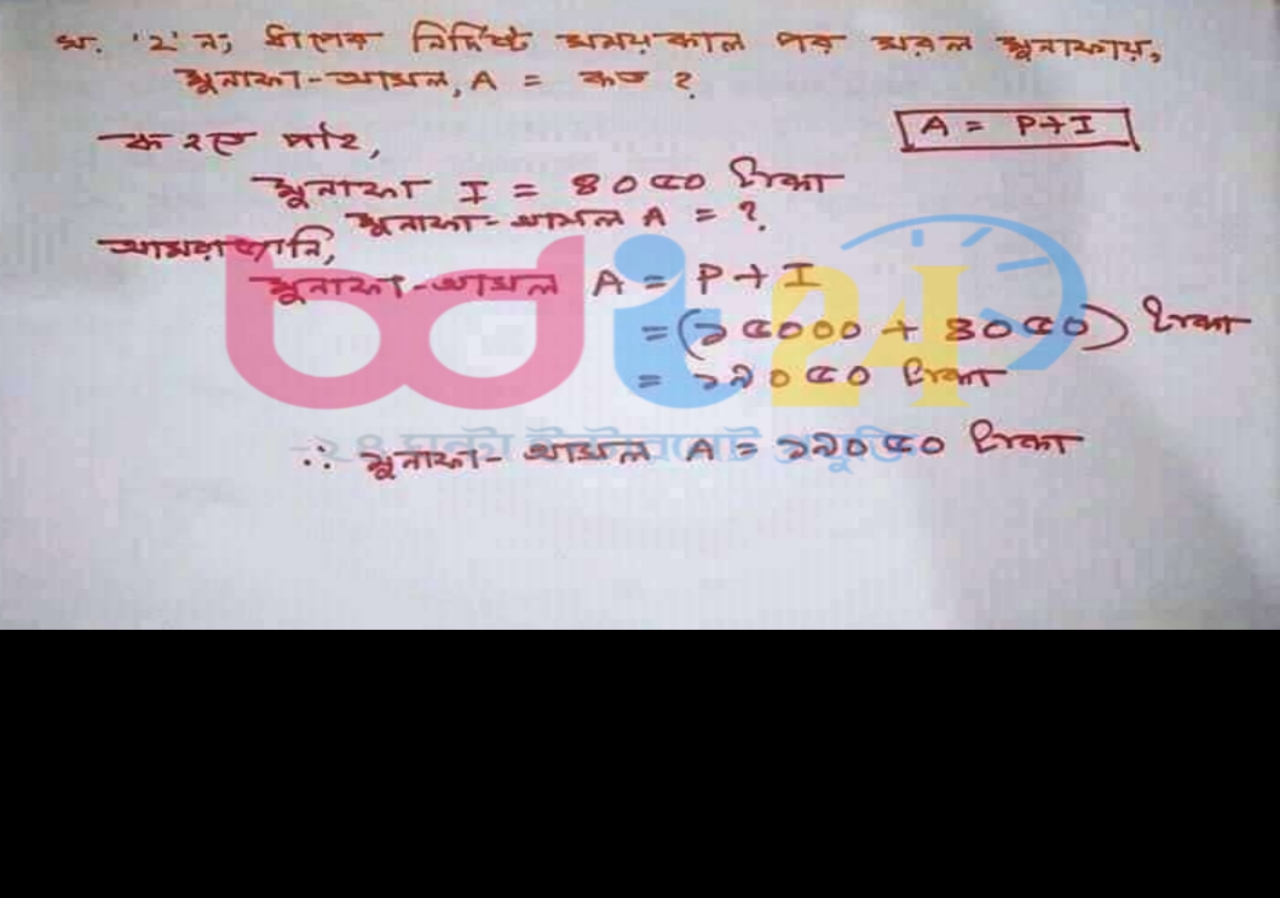 খ. '২' নং ধাপের নির্দিষ্ট সময়কাল পর সরল মুনাফায়,
মুনাফা-আসল, A = কত ?
A = P+I
ক হতে পাই,
মুনাফা I = ৪০৫০ টাকা
মুনাফা-আসল A = ?
আমরা জানি,
মুনাফা-আসল A = P + I
= (১৫০০০ + ৪০৫০) টাকা
= ১৯০৫০ টাকা
∴ মুনাফা-আসল A = ১৯০৫০ টাকা
bdi24
২৪ ঘন্টা ইন্টারনেট প্রযুক্তি